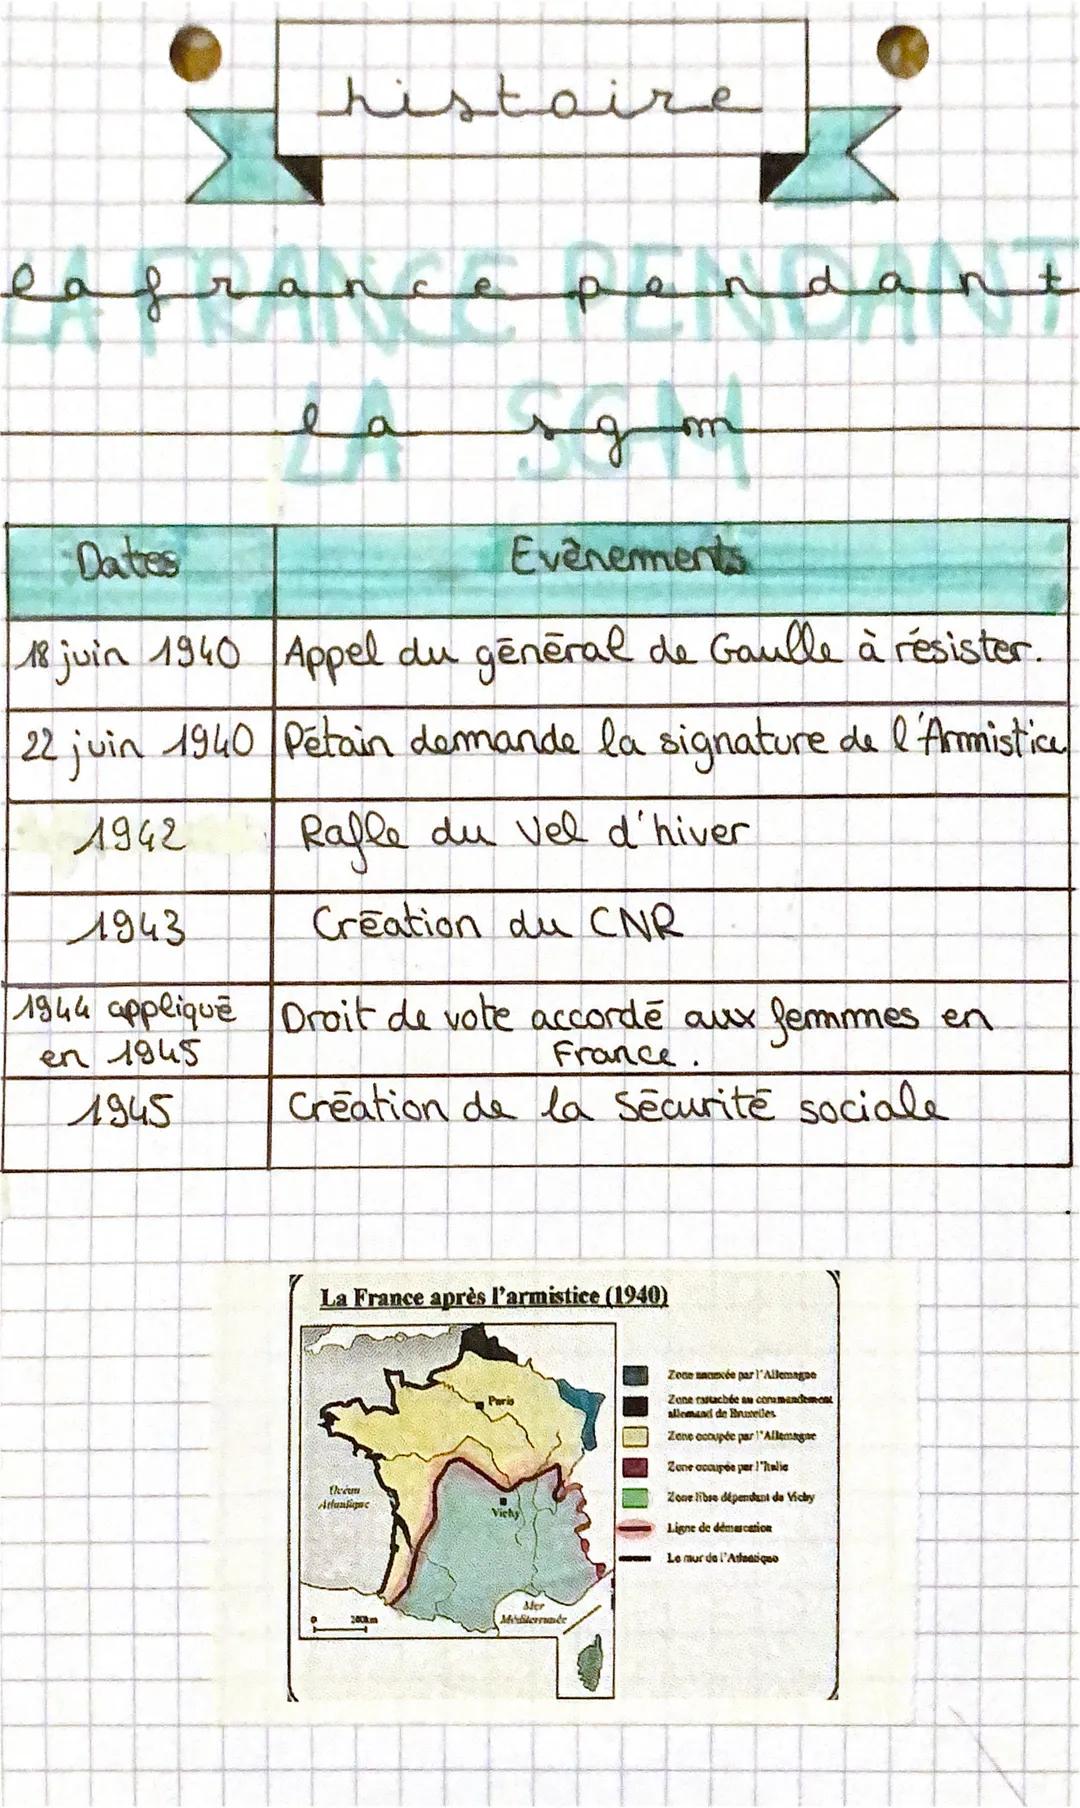 histoire
la france pendant
LA FRANCE PENDANT
la sgm
LA SGM
Dates Evènements
18 juin 1940 Appel du général de Gaulle à résister.
22 juin 1940 Pétain demande la signature de l'Armistice
1942 Rafle du Vel d'hiver
1943 Création du CNR
1944 appliqué Droit de vote accordé aux femmes en
en 1945 France.
1945 Création de la Sécurité sociale
La France après l'armistice (1940)
Zone annexée par l'Allemagne
Zone rattachée au commandement
allemand de Bruxelles
Zone occupée par l'Allemagne
Zone occupée par l'Italie
Zone libre dépendant de Vichy
Ligne de démarcation
Le mur de l'Atlantique
Paris
Océan
Atlantique
Vichy
Mer
Méditerranée
0 200km